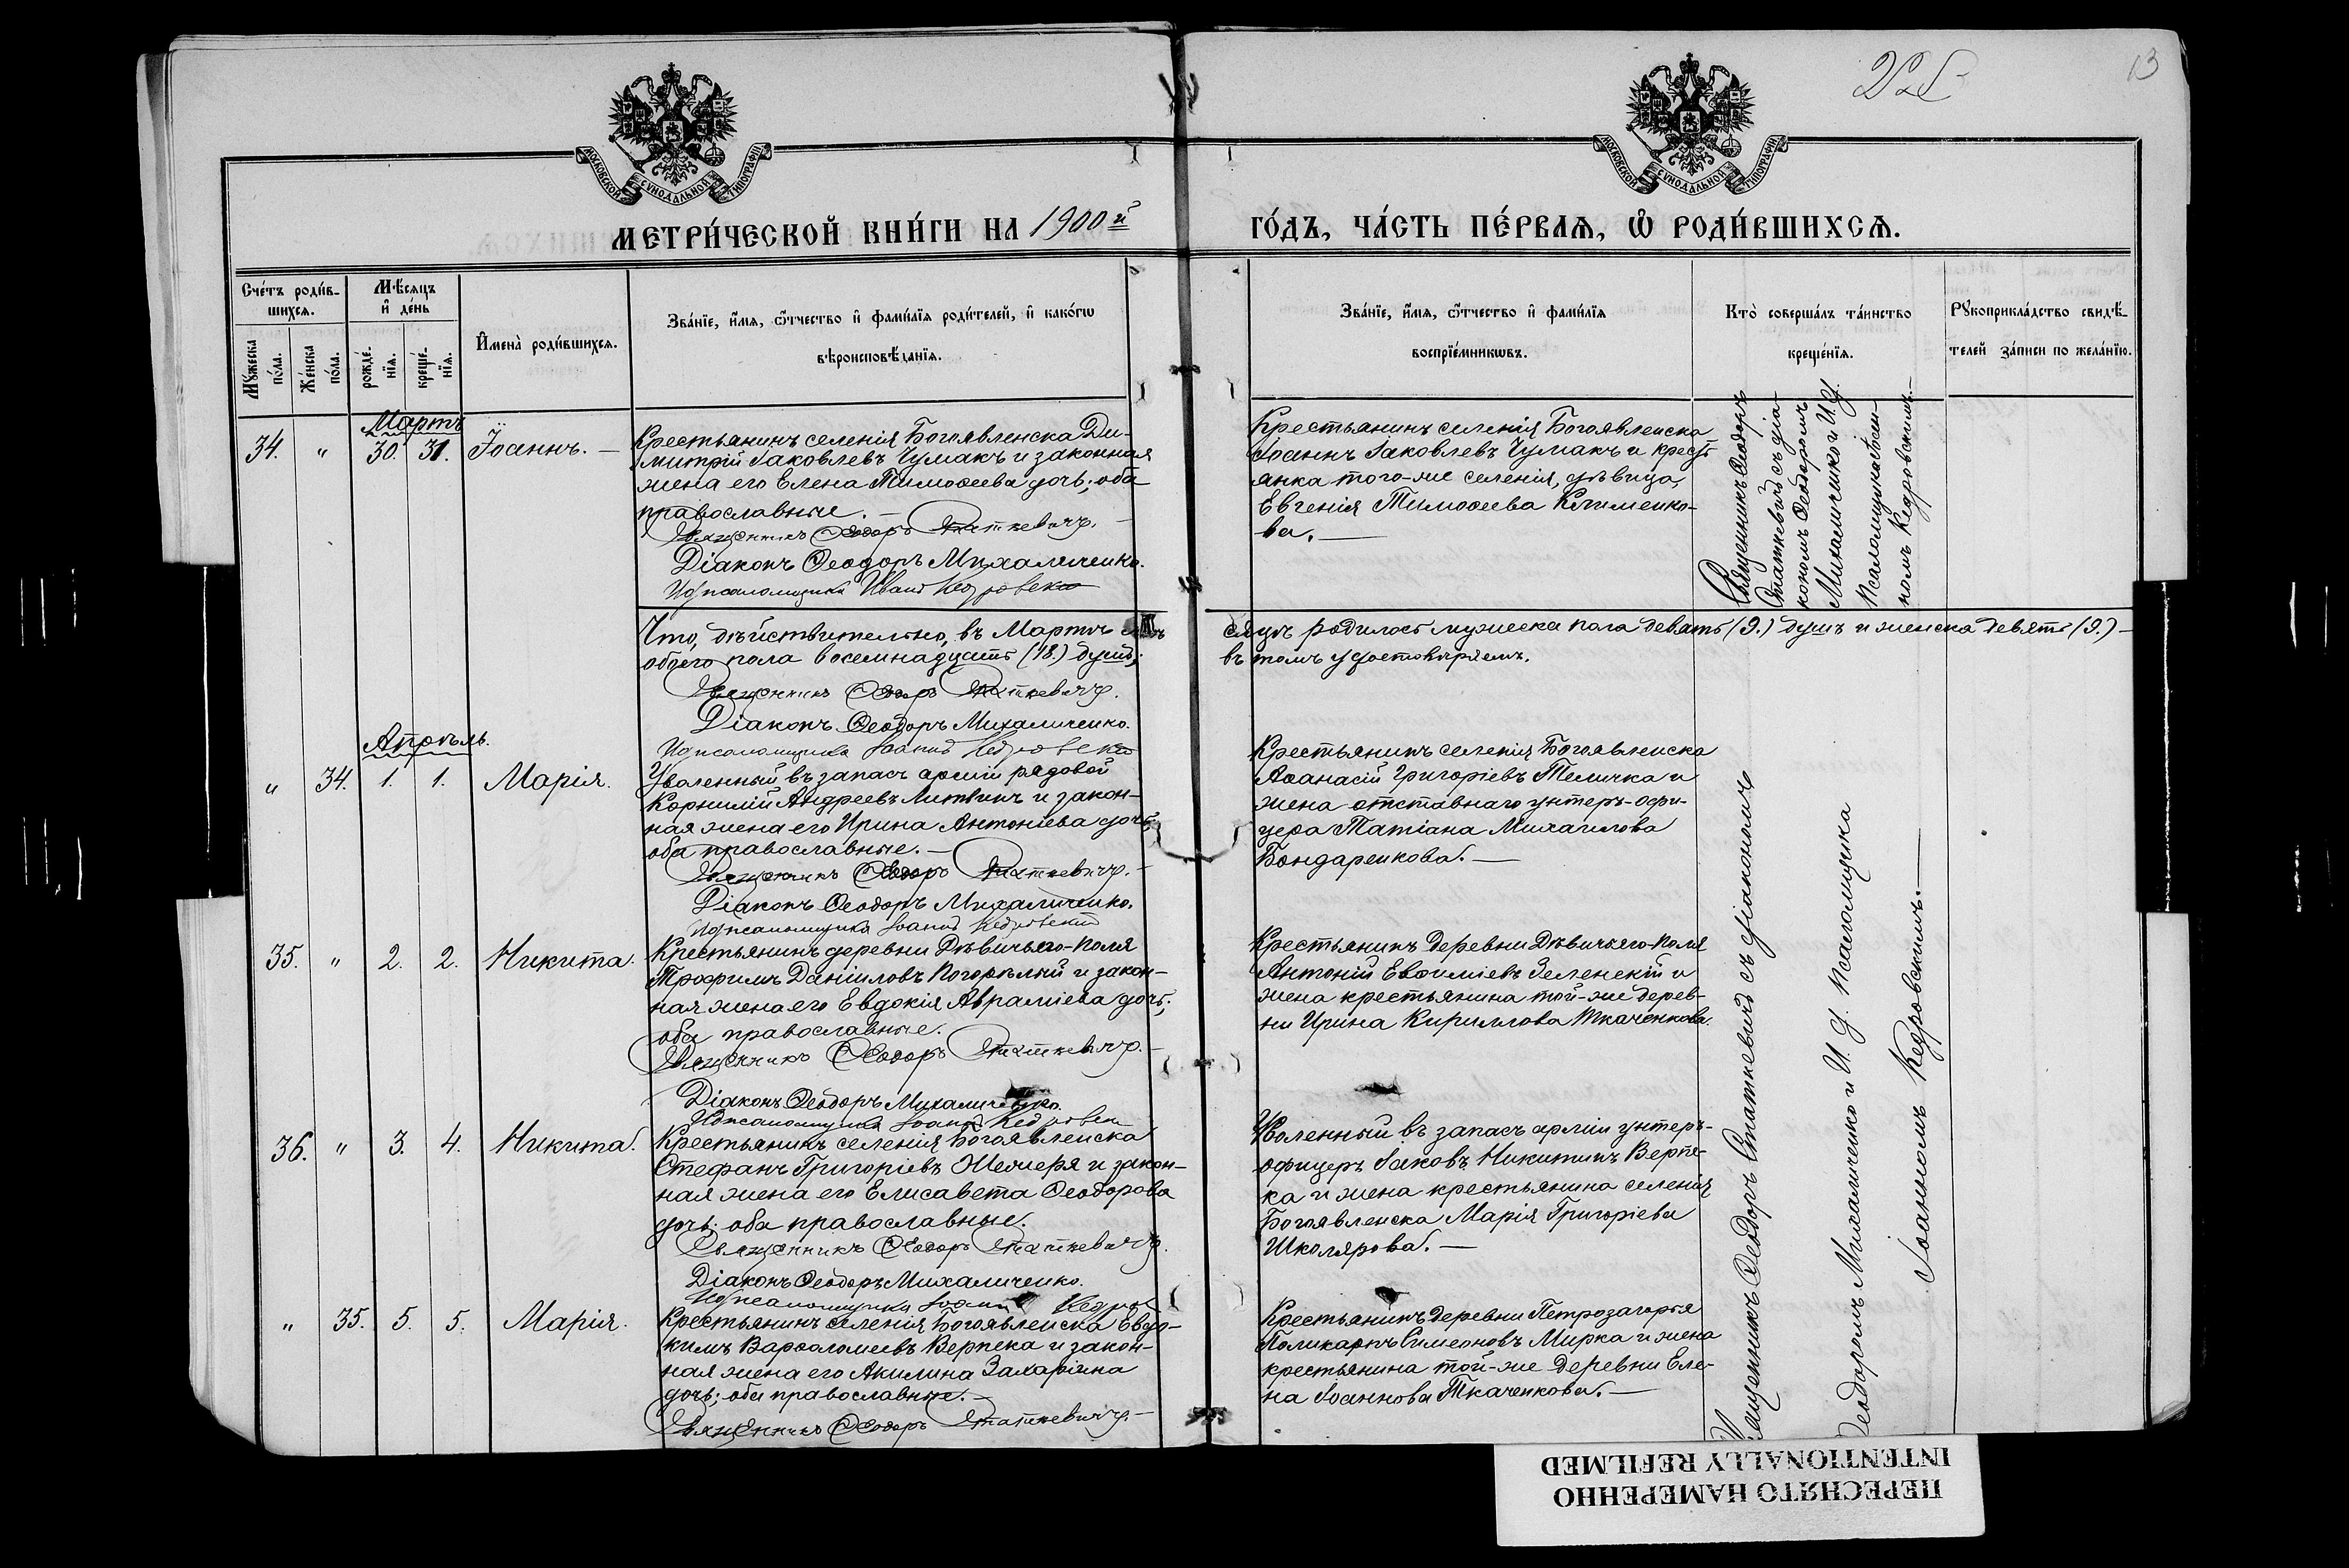 225
13
МОСКОВСКОЙ СУНОДАЛЬНОЙ ТИПОГРАФІИ
МОСКОВСКОЙ СУНОДАЛЬНОЙ ТИПОГРАФІИ
МЕТРИ́ЧЕСКОЙ КНИ́ГИ НА 1900й
ГО́ДЪ, ЧА́СТЬ ПЕ́РВАѦ, Ѡ РОДИ́ВШИХСѦ.
Сче́тъ роди́в-
шихсѧ.
Мꙋ́жеска
по́ла.
Же́нска
по́ла.
Мѣ́сѧцъ
и҆ де́нь
рожде́-
нїѧ.
креще́-
нїѧ.
И҆мена̀ роди́вшихсѧ.
Зва́нїе, и҆́мѧ, ѻ҆́тчество и҆ фами́лїѧ роди́телей, и҆ како́гѡ
вѣроисповѣ́данїѧ.
Зва́нїе, и҆́мѧ, ѻ҆́тчество и҆ фами́лїѧ
воспрїе́мникѡвъ.
Кто̀ соверша́лъ та́инство
креще́нїѧ.
Рꙋкоприкла́дство свидѣ́-
телей за́писи по жела́нїю.
Мартъ
34. " 30. 31. Іоаннъ. —
Крестьянинъ селенія Богоявленска Ди-
митрій Іаковлевъ Чумакъ и законная
жена его Елена Тимоѳеева дочь; оба
православные. —
Священникъ Ѳеодоръ Статкевичъ. —
Діаконъ Ѳеодоръ Михаличенко.
И д псаломщика Иванъ Кедровскій
Крестьянинъ селенія Богоявленска
Іоаннъ Іаковлевъ Чумакъ и крестъ
янка того-же селенія, дѣвица,
Евгенія Тимоѳеева Клименко-
ва. —
Священникъ Ѳеодоръ
Статкевичъ съ діа-
кономъ Ѳеодоромъ
Михаличенко и И. д.
псаломщика Іоан-
номъ Кедровскимъ. —
Что, дѣйствительно, въ Мартѣ мѣ-
сяцѣ родилось мужеска пола девять (9.) душъ и женска девять (9.) —
обоего пола восемнадцать (18.) душъ;
въ томъ удостовѣряемъ.
Священникъ Ѳеодоръ Статкевичъ.
Діаконъ Ѳеодоръ Михаличенко.
И д псаломщика Іоаннъ Кедровскій
Апрѣль.
" 34. 1. 1. Марія.
Уволенный въ запасъ арміи рядовой
Корнилій Андреевъ Литвинъ и закон-
ная жена его Ирина Антоніева дочь;
оба православные. —
Священникъ Ѳеодоръ Статкевичъ. —
Діаконъ Ѳеодоръ Михаличенко.
И д псаломщика Іоаннъ Кедровскій
Крестьянинъ селенія Богоявленска
Аѳанасій Григоріевъ Теличка и
жена отставнаго унтеръ-офи-
цера Татіана Михаилова
Бондаренкова. —
35. " 2. 2. Никита.
Крестьянинъ деревни Дѣвичьяго-поля
Трофимъ Даніиловъ Погорѣлый и закон-
ная жена его Евдокія Авраміева дочь;
оба православные.
Священникъ Ѳеодоръ Статкевичъ. —
Діаконъ Ѳеодоръ Михаличенко.
И д псаломщика Іоаннъ Кедровск
Крестьянинъ деревни Дѣвичьяго-поля
Антоній Евѳиміевъ Зеленскій и
жена крестьянина той-же дерев-
ни Ирина Кириллова Ткаченкова.
36. " 3. 4. Никита.
Крестьянинъ селенія Богоявленска
Стефанъ Григоріевъ Жемеря и закон-
ная жена его Елисавета Ѳеодорова
дочь; оба православные.
Священникъ Ѳеодоръ Статкевичъ.
Діаконъ Ѳеодоръ Михаличенко.
И д псаломщика Іоаннъ Кедров
Уволенный въ запасъ арміи унтеръ-
офицеръ Іаковъ Никитинъ Верпе-
ка и жена крестьянина селенія
Богоявленска Марія Григоріева
Школярова. —
" 35. 5. 5. Марія.
Крестьянинъ селенія Богоявленска Евдо-
кимъ Варѳоломеевъ Верпека и закон-
ная жена его Акилина Захаріина
дочь; оба православные. —
Священникъ Ѳеодоръ Статкевичъ. —
Крестьянинъ деревни Петрозагорья
Поликарпъ Симеоновъ Мирка и жена
крестьянина той-же деревни Еле-
на Іоаннова Ткаченкова. —
Священникъ Ѳеодоръ Статкевичъ съ діакономъ
Ѳеодоромъ Михаличенко и И. д. псаломщика
Іоанномъ Кедровскимъ. —
ПЕРЕСНЯТО НАМЕРЕННО
INTENTIONALLY REFILMED